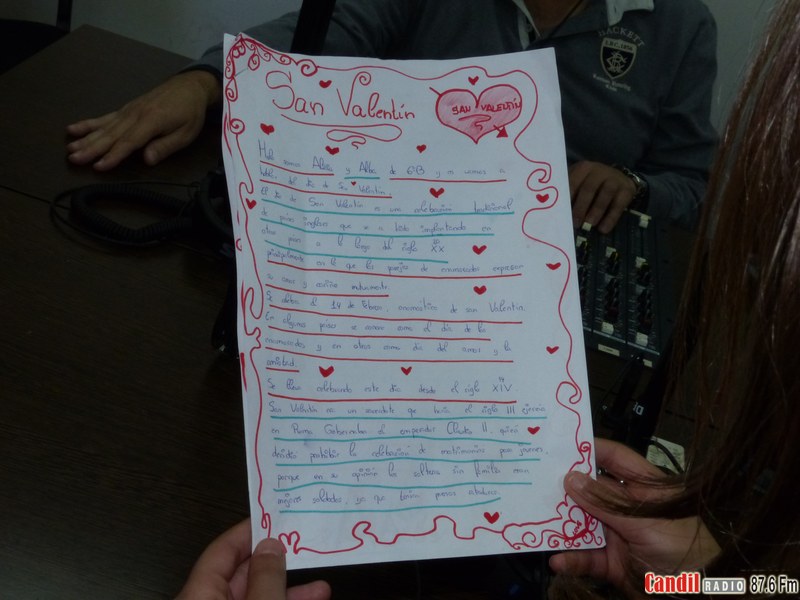 San Valentín
SAN VALENTÍN
HACKETT
Hola somos Alba y Alba de 6ºB y os vamos a
hablar del día de San Valentín.
El día de San Valentín es una celebración tradicional
de países ingleses que se a ido implantando en
otros países a lo largo del siglo XX
principalmente en el que las parejas de enamorados expresan
su amor y cariño mutuamente.
Se celebra el 14 de febrero, onomástico de san Valentín.
En algunos países se conoce como el día de los
enamorados y en otros como día del amor y la
amistad.
Se lleva celebrando este día desde el siglo XIV.
San Valentín era un sacerdote que hacia el siglo III ejercía
en Roma. Gobernaba el emperador Claudio II, quien
decidió prohibir la celebración de matrimonios para jóvenes,
porque en su opinión los solteros sin familia eran
mejores soldados, ya que tenían menos ataduras.
Candil RADIO 87.6 Fm